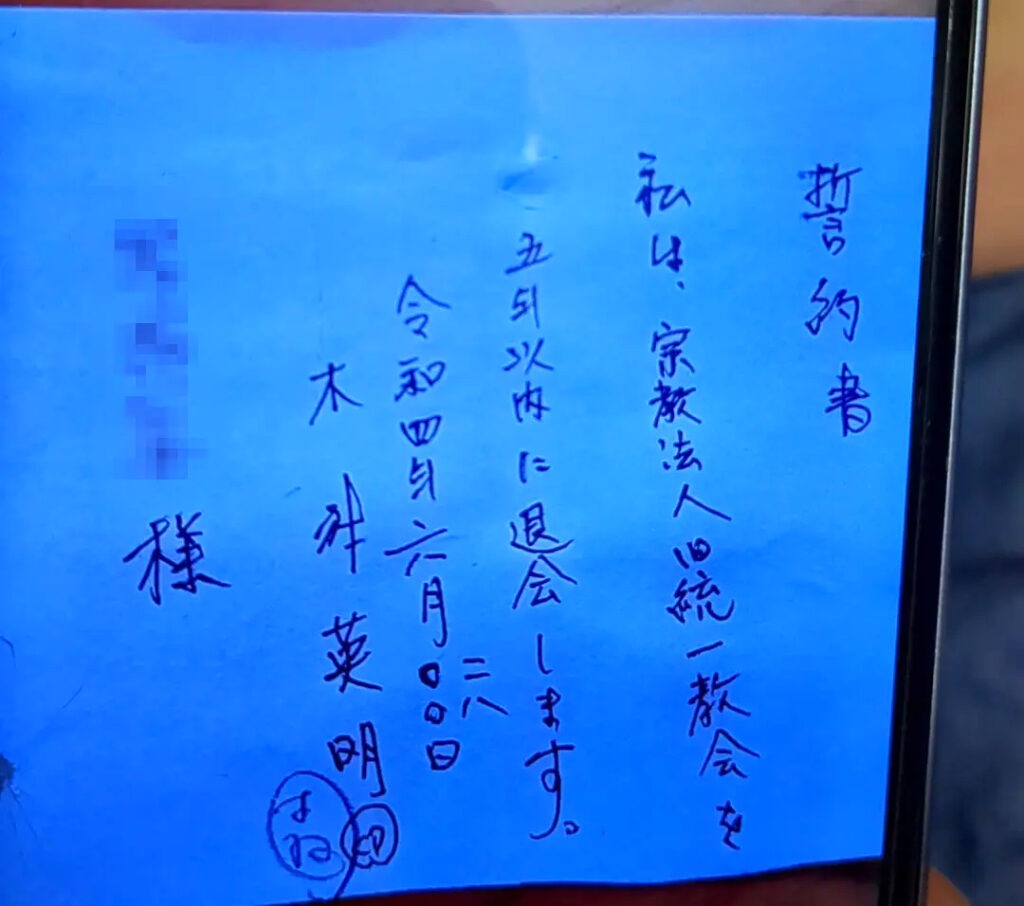 誓約書
私は、宗教法人旧統一教会を
五年以内に退会します。
令和四年六月〇〇日
二八
木舛英明
印
様